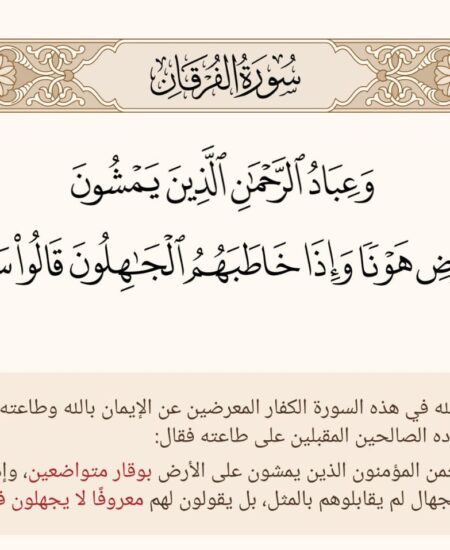 سُورَةُ الفُرْقَانِ
وَعِبَادُ ٱلرَّحْمَٰنِ ٱلَّذِينَ يَمْشُونَ
هَوْنًا وَإِذَا خَاطَبَهُمُ ٱلْجَٰهِلُونَ قَالُوا۟
في هذه السورة الكفار المعرضين عن الإيمان بالله وطاعته
الصالحين المقبلين على طاعته فقال:
المؤمنون الذين يمشون على الأرض بوقار متواضعين،
لم يقابلوهم بالمثل، بل يقولون لهم معروفًا لا يجهلون